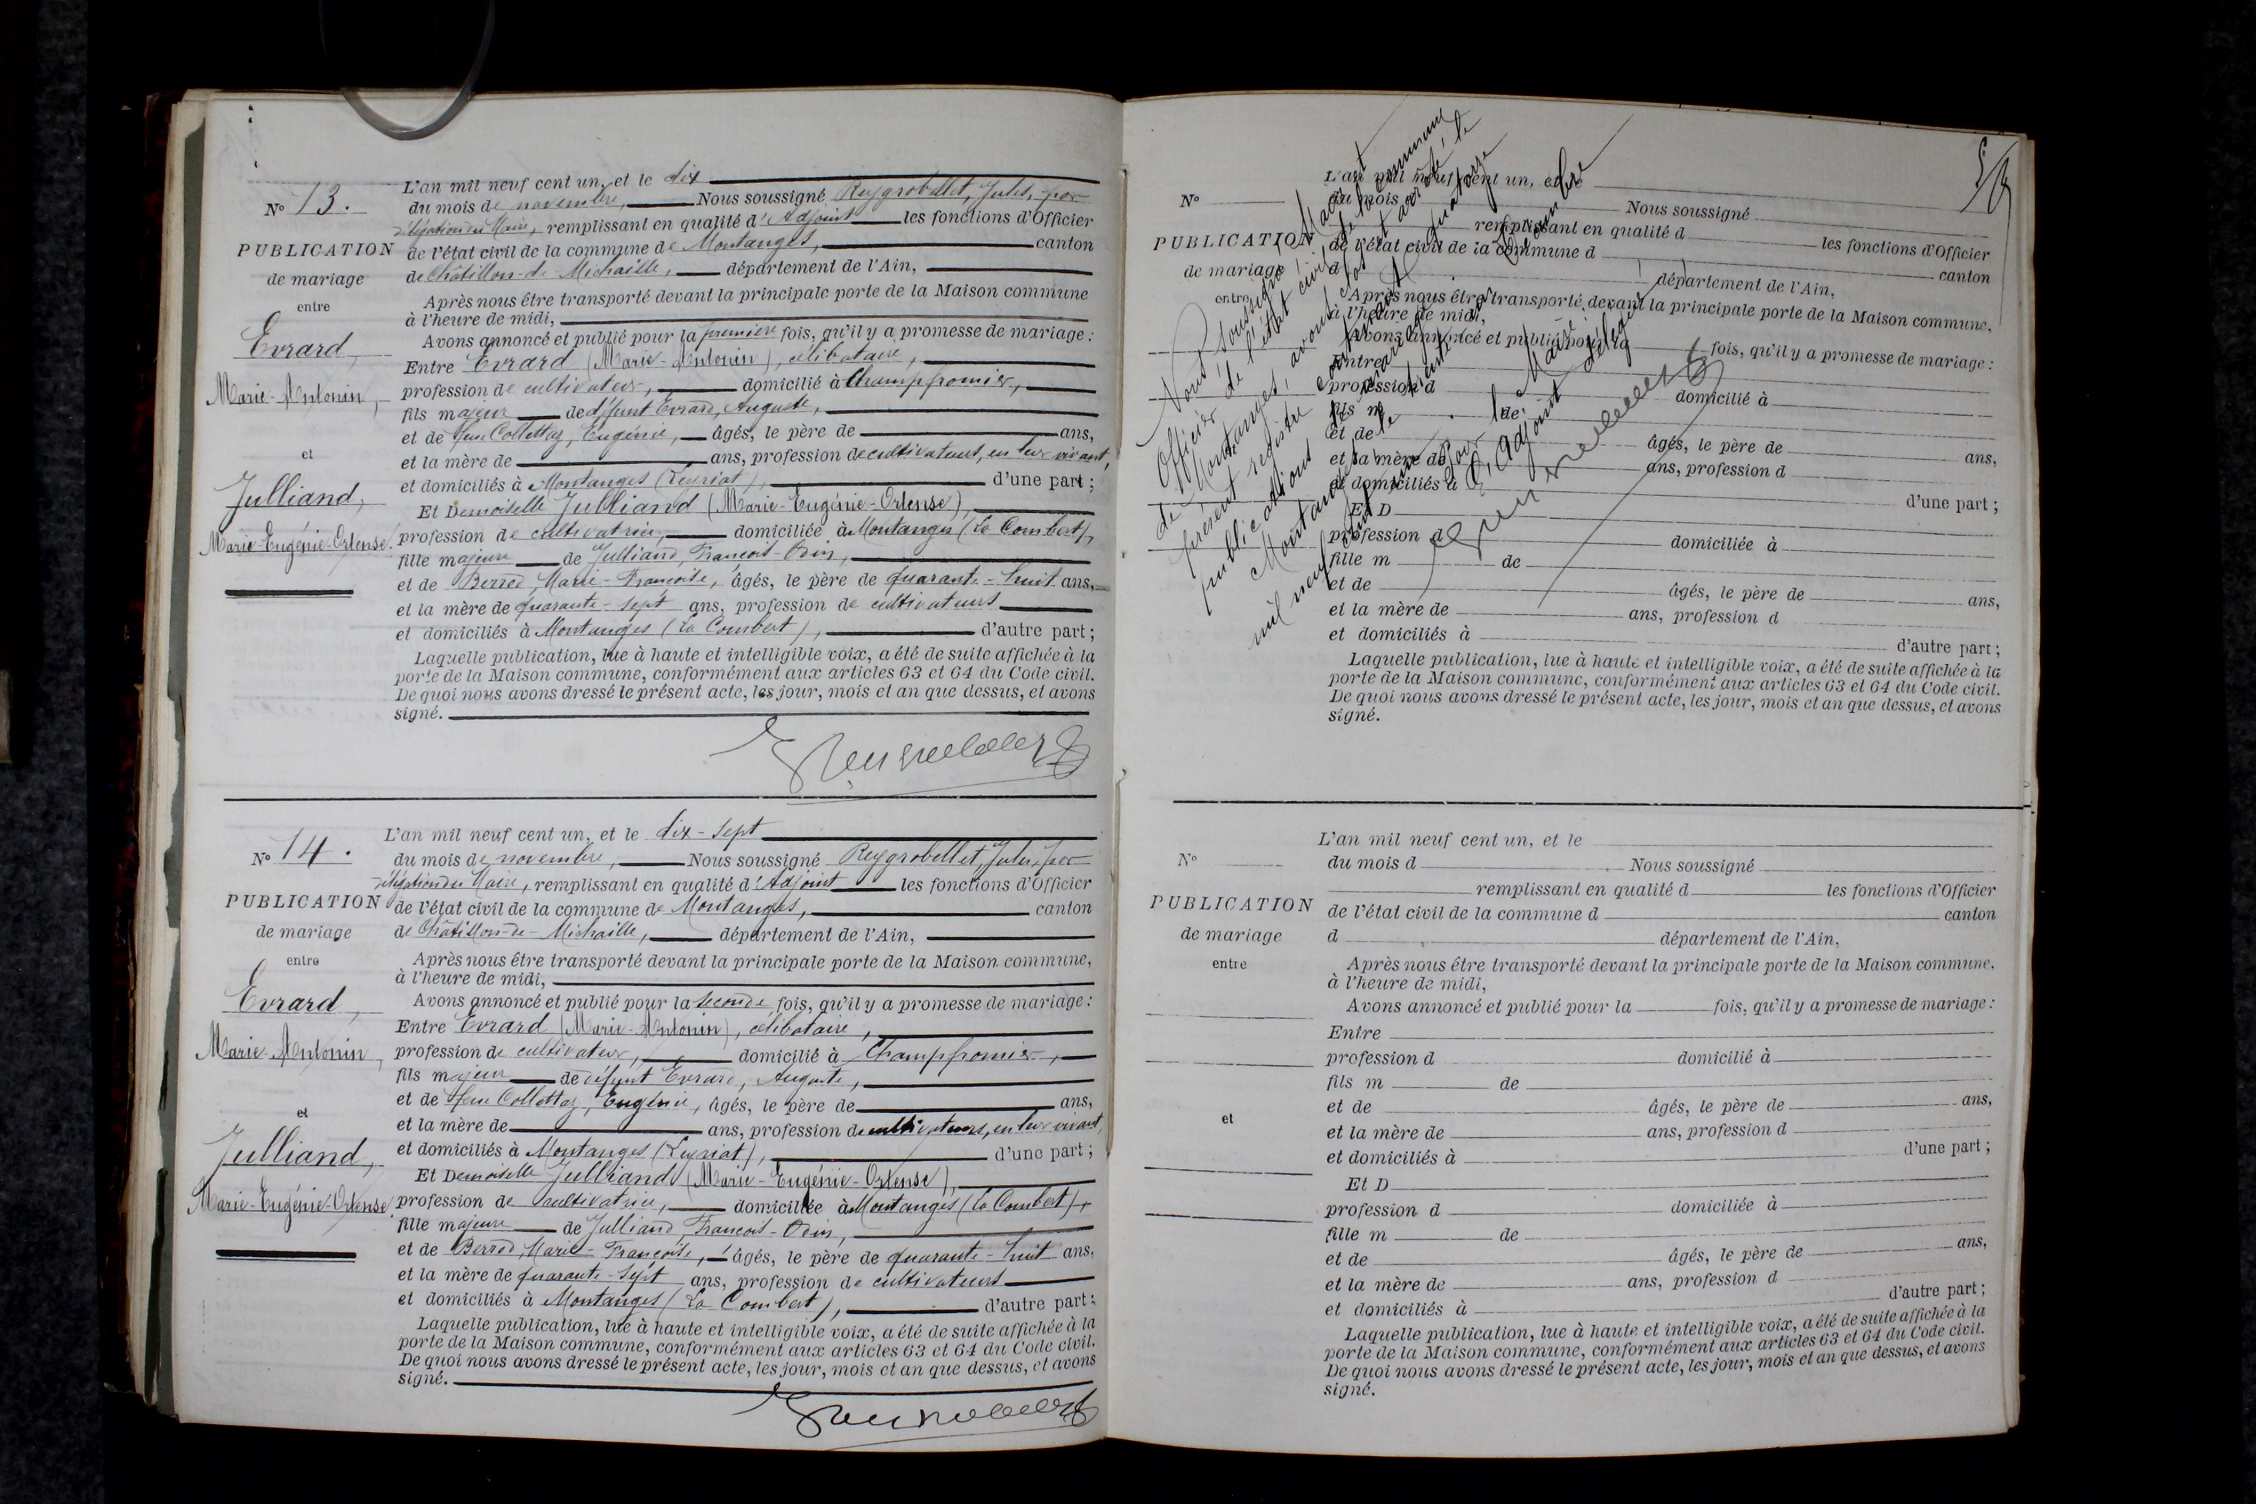 L'an mil neuf cent un, et le dix
Nº 13. du mois de novembre, Nous soussigné Reygrobellet, Jules, par
délégation du Maire, remplissant en qualité d'Adjoint les fonctions d'Officier
PUBLICATION de l'état civil de la commune de Montanges, canton
de mariage de Châtillon-de-Michaille, département de l'Ain,
entre Après nous être transporté devant la principale porte de la Maison commune
à l'heure de midi,
Avons annoncé et publié pour la première fois, qu'il y a promesse de mariage :
Evrard, Entre Evrard (Marie-Antonin), célibataire,
Marie-Antonin, profession de cultivateur, domicilié à Champfromier,
fils majeur de défunt Evrard, Auguste,
et de feue Collettaz, Eugénie, âgés, le père de ans,
et et la mère de ans, profession de cultivateurs, en leur vivant,
et domiciliés à Montanges (Leyriat), d'une part ;
Julliand, Et Demoiselle Julliand (Marie-Eugénie-Ortense),
Marie-Eugénie-Ortense. profession de cultivatrice, domiciliée à Montanges (La Combert),
fille majeure de Julliand, François-Odin,
et de Berrod, Marie-Françoise, âgés, le père de quarante-huit ans,
et la mère de quarante-sept ans, profession de cultivateurs
et domiciliés à Montanges (La Combert), d'autre part ;
Laquelle publication, lue à haute et intelligible voix, a été de suite affichée à la
porte de la Maison commune, conformément aux articles 63 et 64 du Code civil.
De quoi nous avons dressé le présent acte, les jour, mois et an que dessus, et avons
signé.
L'an mil neuf cent un, et le dix-sept
Nº 14. du mois de novembre, Nous soussigné Reygrobellet, Jules, par
délégation du Maire, remplissant en qualité d'Adjoint les fonctions d'Officier
PUBLICATION de l'état civil de la commune de Montanges, canton
de mariage de Châtillon-de-Michaille, département de l'Ain,
entre Après nous être transporté devant la principale porte de la Maison commune,
à l'heure de midi,
Evrard, Avons annoncé et publié pour la seconde fois, qu'il y a promesse de mariage :
Entre Evrard (Marie-Antonin), célibataire,
Marie-Antonin, profession de cultivateur, domicilié à Champfromier,
fils majeur de défunt Evrard, Auguste,
et de feue Collettaz, Eugénie, âgés, le père de ans,
et et la mère de ans, profession de cultivateurs, en leur vivant,
et domiciliés à Montanges (Leyriat), d'une part ;
Julliand, Et Demoiselle Julliand (Marie-Eugénie-Ortense),
Marie-Eugénie-Ortense. profession de cultivatrice, domiciliée à Montanges (La Combert),
fille majeure de Julliand, François-Odin,
et de Berrod, Marie-Françoise, âgés, le père de quarante-huit ans,
et la mère de quarante-sept ans, profession de cultivateurs
et domiciliés à Montanges (La Combert), d'autre part ;
Laquelle publication, lue à haute et intelligible voix, a été de suite affichée à la
porte de la Maison commune, conformément aux articles 63 et 64 du Code civil.
De quoi nous avons dressé le présent acte, les jour, mois et an que dessus, et avons
signé.
L'an mil neuf cent un, et le
Nº du mois d Nous soussigné
remplissant en qualité d les fonctions d'Officier
PUBLICATION de l'état civil de la commune d canton
de mariage d département de l'Ain,
entre Après nous être transporté devant la principale porte de la Maison commune,
à l'heure de midi,
Avons annoncé et publié pour la fois, qu'il y a promesse de mariage :
Entre
profession d domicilié à
fils m de
et de âgés, le père de ans,
et la mère de ans, profession d
et domiciliés à d'une part ;
Et D
profession d domiciliée à
fille m de
et de âgés, le père de ans,
et la mère de ans, profession d
et domiciliés à d'autre part ;
Laquelle publication, lue à haute et intelligible voix, a été de suite affichée à la
porte de la Maison commune, conformément aux articles 63 et 64 du Code civil.
De quoi nous avons dressé le présent acte, les jour, mois et an que dessus, et avons
signé.
Nous soussigné, Maire
Officier de l'état civil de la commune
de Montanges, avons clos et arrêté le
présent registre contenant quatorze
publications de mariage
Montanges, le trente un Décembre
mil neuf cent un.
Pour le Maire :
L'Adjoint délégué
L'an mil neuf cent un, et le
Nº du mois d Nous soussigné
remplissant en qualité d les fonctions d'Officier
PUBLICATION de l'état civil de la commune d canton
de mariage d département de l'Ain,
entre Après nous être transporté devant la principale porte de la Maison commune,
à l'heure de midi,
Avons annoncé et publié pour la fois, qu'il y a promesse de mariage :
Entre
profession d domicilié à
fils m de
et de âgés, le père de ans,
et et la mère de ans, profession d
et domiciliés à d'une part ;
Et D
profession d domiciliée à
fille m de
et de âgés, le père de ans,
et la mère de ans, profession d
et domiciliés à d'autre part ;
Laquelle publication, lue à haute et intelligible voix, a été de suite affichée à la
porte de la Maison commune, conformément aux articles 63 et 64 du Code civil.
De quoi nous avons dressé le présent acte, les jour, mois et an que dessus, et avons
signé.